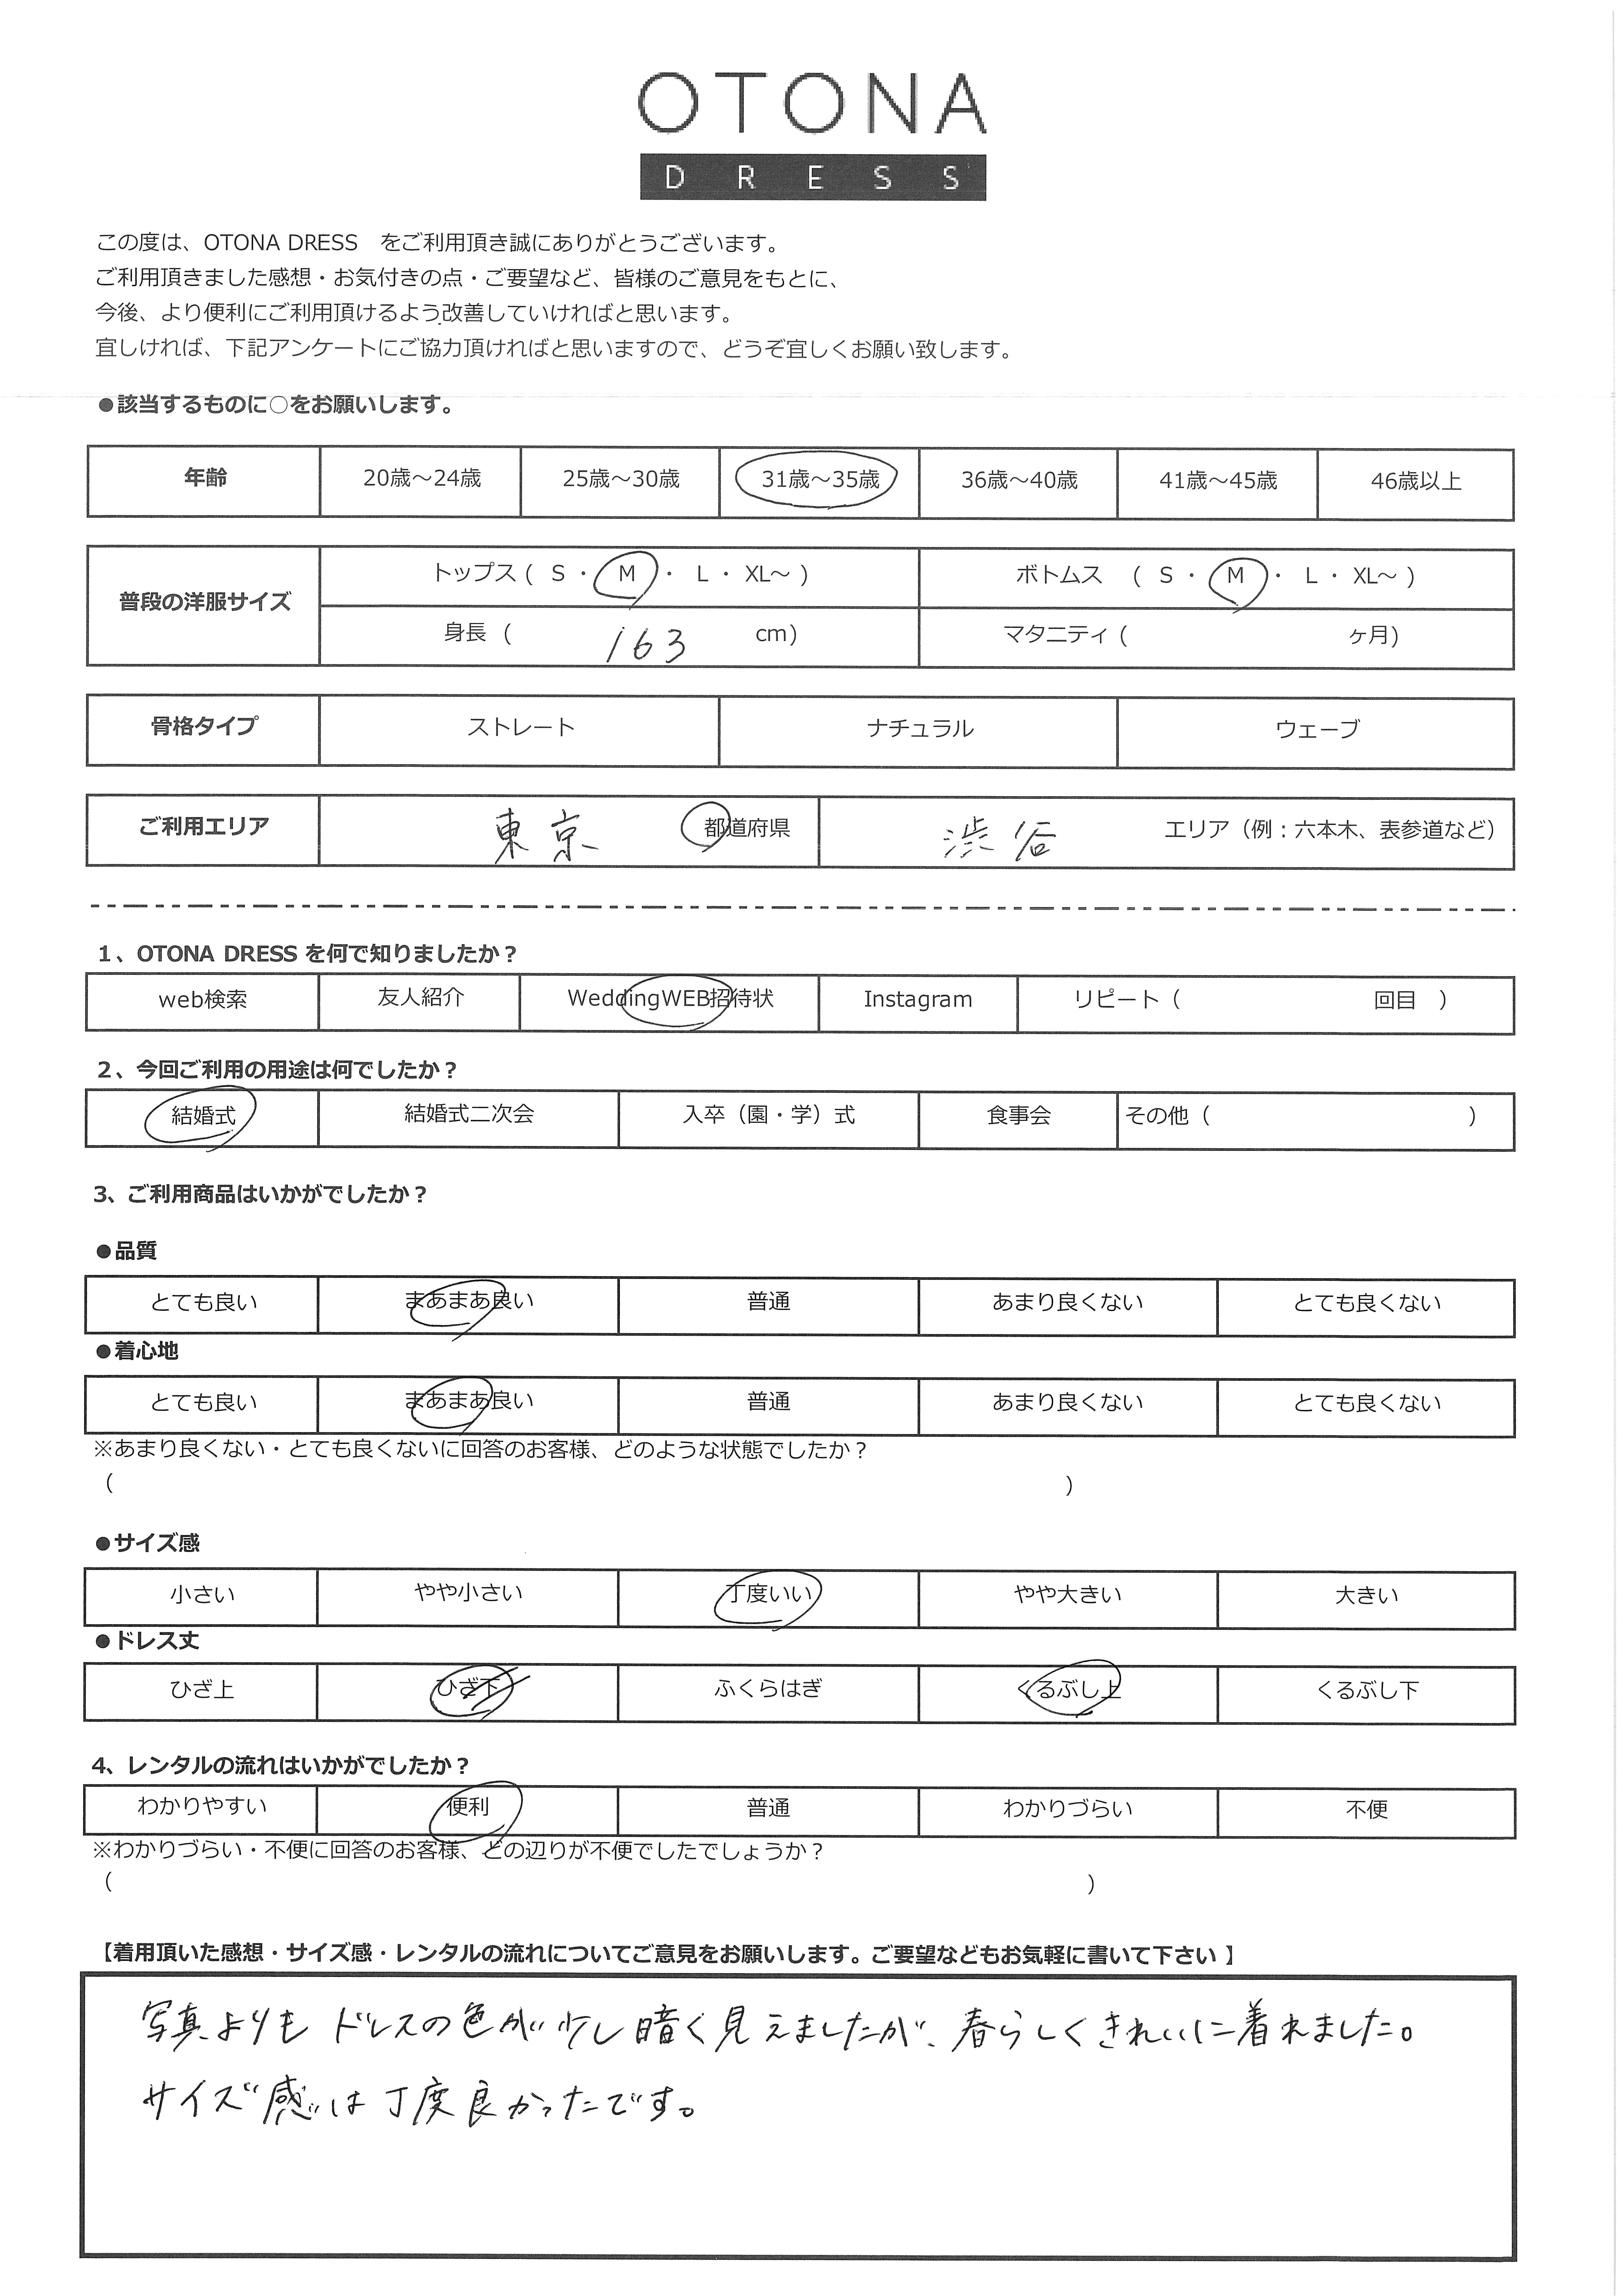 OTONA
DRESS
この度は、OTONA DRESS　をご利用頂き誠にありがとうございます。
ご利用頂きました感想・お気付きの点・ご要望など、皆様のご意見をもとに、
今後、より便利にご利用頂けるよう改善していければと思います。
宜しければ、下記アンケートにご協力頂ければと思いますので、どうぞ宜しくお願い致します。
●該当するものに○をお願いします。
年齢 20歳～24歳 25歳～30歳 31歳～35歳 36歳～40歳 41歳～45歳 46歳以上
普段の洋服サイズ トップス ( S ・ M ・ L ・ XL～ ) ボトムス ( S ・ M ・ L ・ XL～ )
身長 ( 163 cm) マタニティ ( ヶ月)
骨格タイプ ストレート ナチュラル ウェーブ
ご利用エリア 東京 都道府県 渋谷 エリア（例：六本木、表参道など）
1、OTONA DRESS を何で知りましたか？
web検索 友人紹介 WeddingWEB招待状 Instagram リピート（ 回目 ）
2、今回ご利用の用途は何でしたか？
結婚式 結婚式二次会 入卒（園・学）式 食事会 その他（ ）
3、ご利用商品はいかがでしたか？
●品質
とても良い まあまあ良い 普通 あまり良くない とても良くない
●着心地
とても良い まあまあ良い 普通 あまり良くない とても良くない
※あまり良くない・とても良くないに回答のお客様、どのような状態でしたか？
（ ）
●サイズ感
小さい やや小さい 丁度いい やや大きい 大きい
●ドレス丈
ひざ上 ひざ下 ふくらはぎ くるぶし上 くるぶし下
4、レンタルの流れはいかがでしたか？
わかりやすい 便利 普通 わかりづらい 不便
※わかりづらい・不便に回答のお客様、どの辺りが不便でしたでしょうか？
（ ）
【着用頂いた感想・サイズ感・レンタルの流れについてご意見をお願いします。ご要望などもお気軽に書いて下さい】
写真よりも ドレスの色が少し暗く見えましたが、春らしくきれいに着れました。
サイズ感は丁度良かったです。